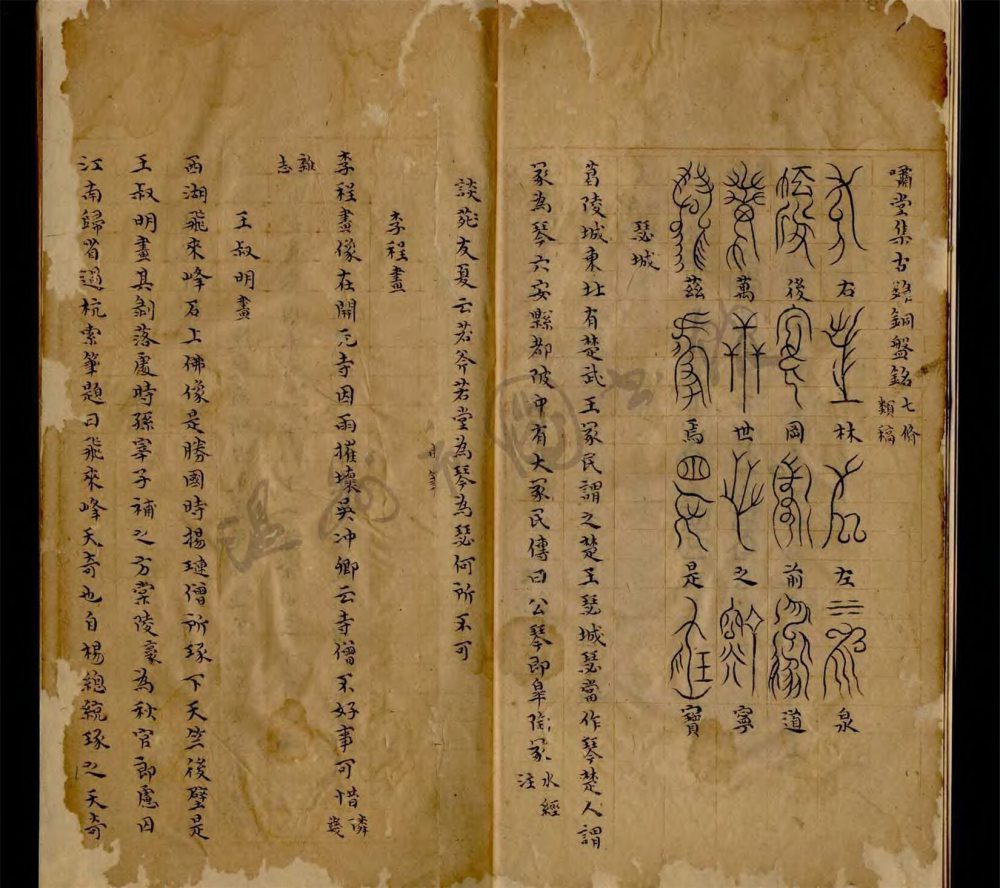 嘯堂集古錄銅盤銘 七脩類稿
右林左泉
後岡前道
萬世之寧
茲焉是寶
瑟城
葛陵城東北有楚武王冢民謂之楚王瑟城瑟當作琴楚人謂
冢為琴六安縣都陂中有大冢民傳曰公琴即皋陶冢 水經注
談苑友夏云若斧若堂為琴為瑟何所不可
李程畫
李程畫像在開元寺因雨摧壞吳冲卿云寺僧不好事可惜 隣幾
雜志
王叔明畫
西湖飛來峰石上佛像是勝國時楊璉僧所琢下天竺後壁是
王叔明畫其剝落處時孫宰子補之方棠陵豪為秋官郎慮囚
江南歸省過杭索筆題曰飛來峰天奇也自楊總統琢之天奇